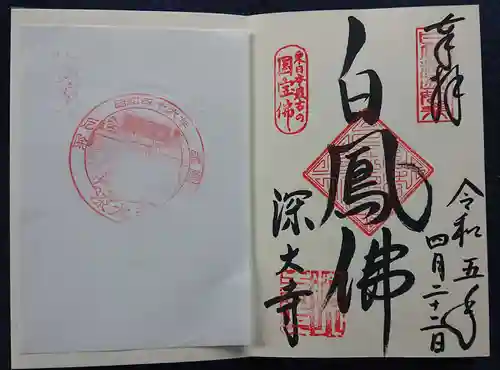 奉拝
令和五年
四月二十二日
白鳳佛
東日本最古の
国宝佛
深大寺